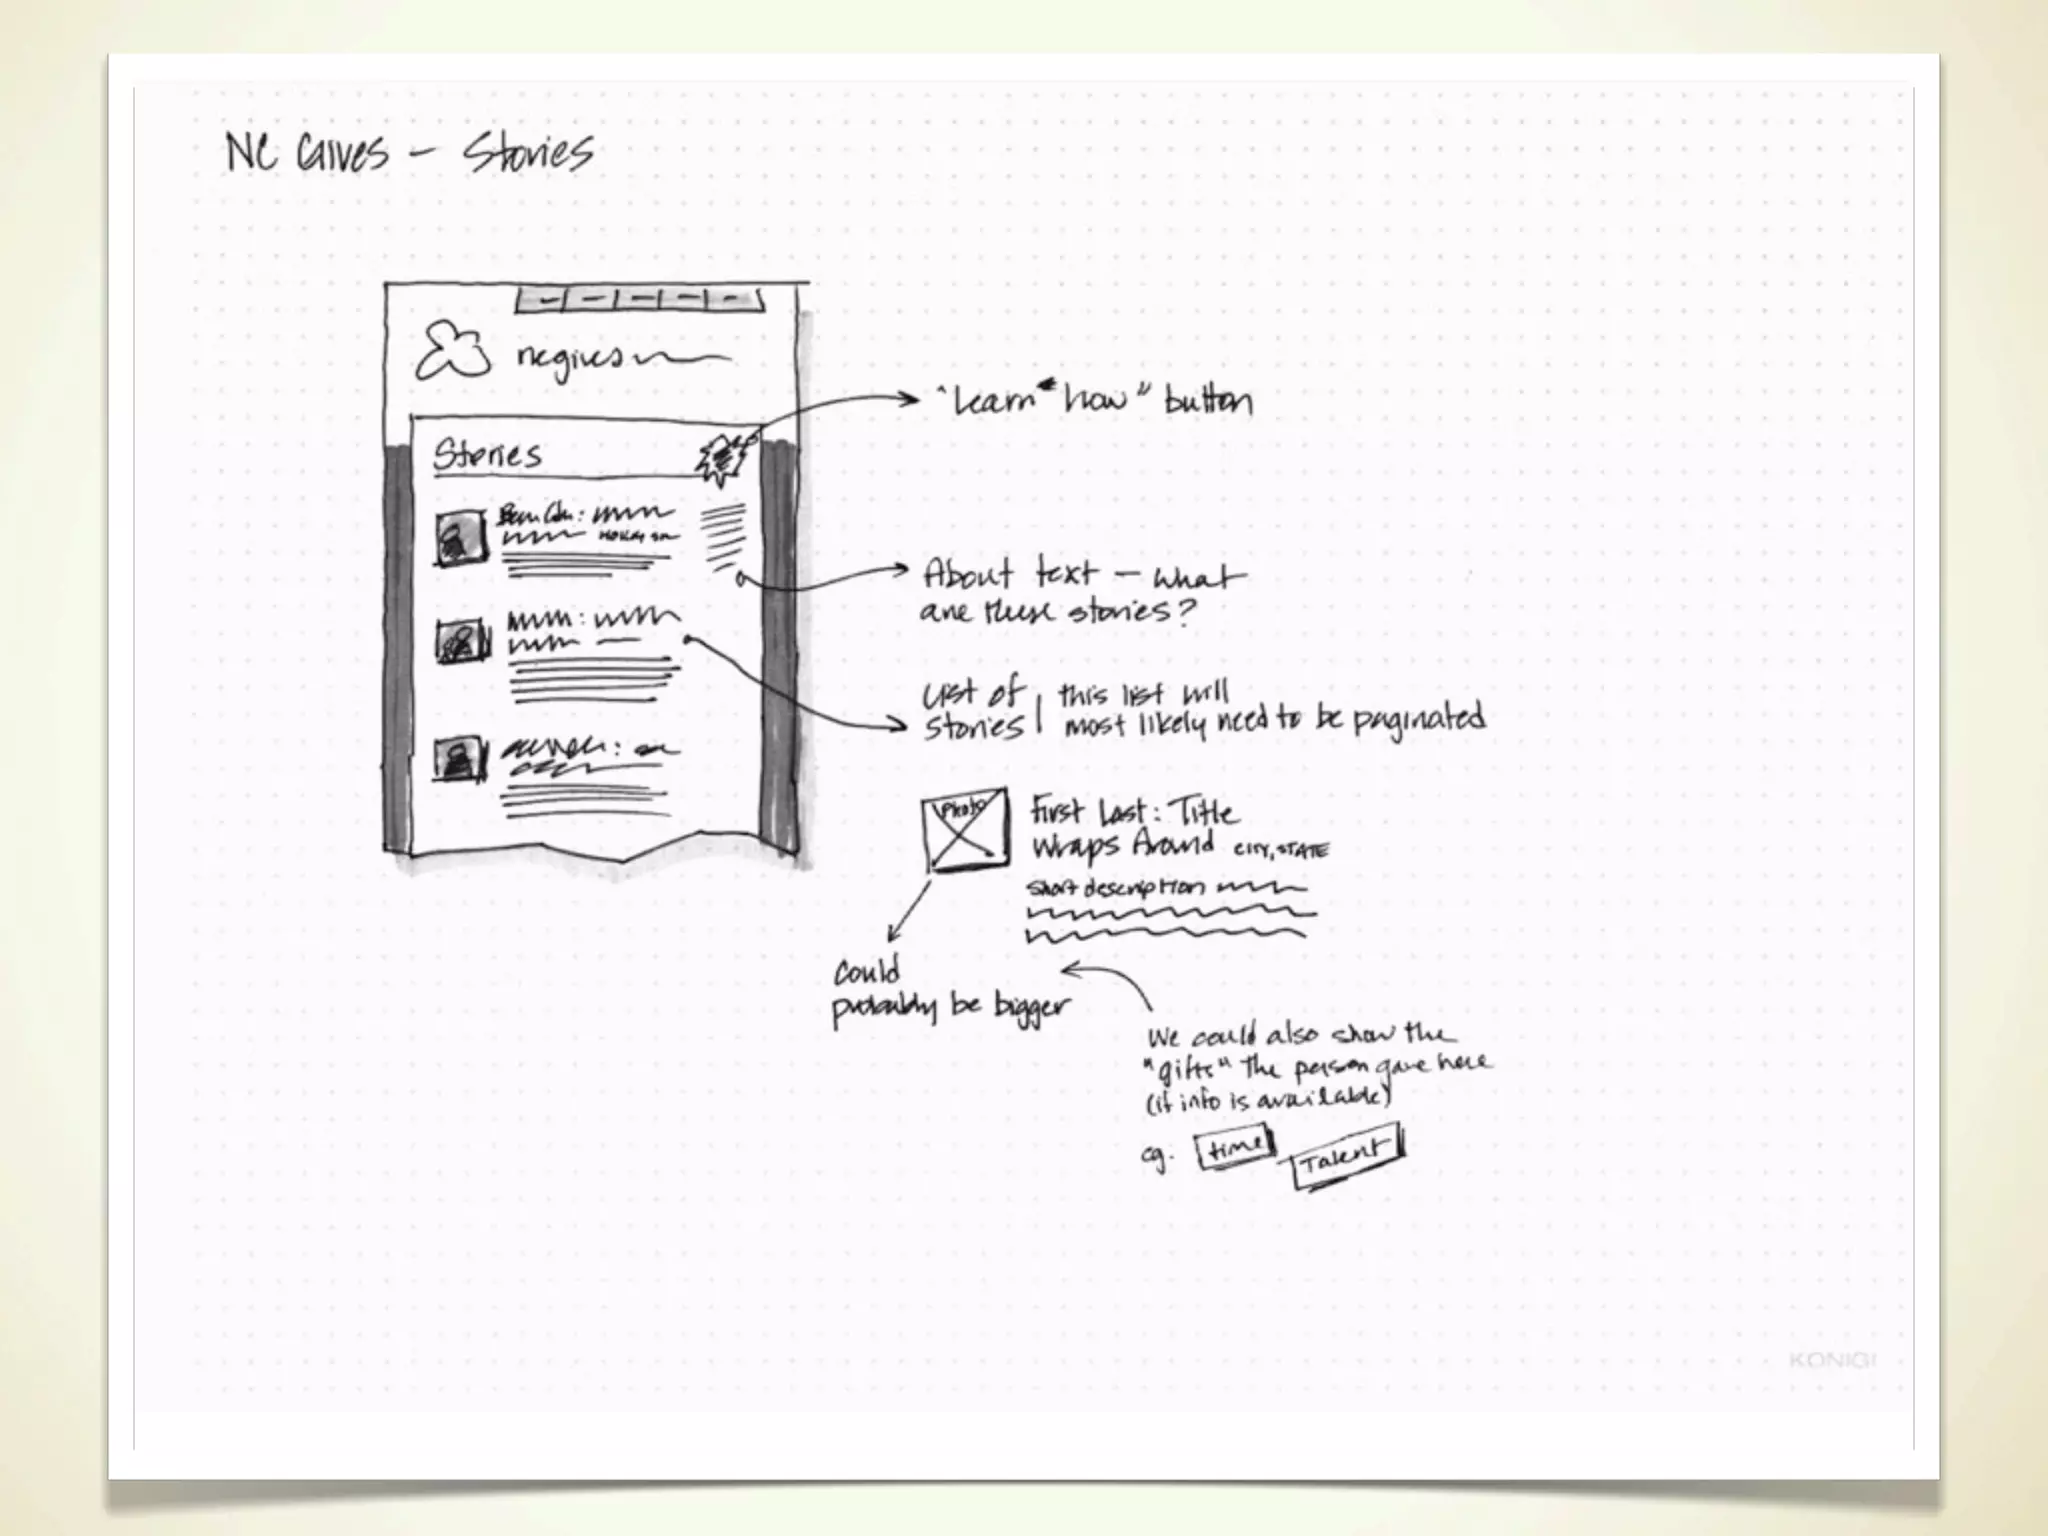 NC Gives – Stories
ncgives
"learn how" button
Stories
About text – what
are these stories?
List of
stories
this list will
most likely need to be paginated
Photo
First Last: Title
Wraps Around CITY, STATE
short description
Could
probably be bigger
We could also show the
"gifts" the person gave here
(if info is available)
eg. time Talent
KONIGI